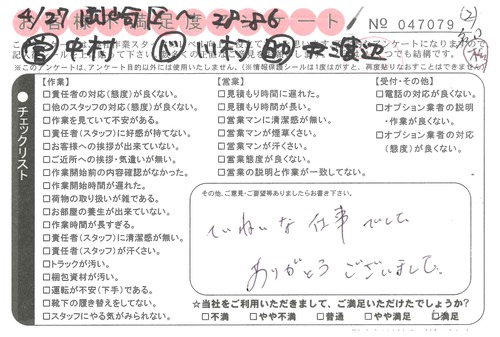 4/27
お客様不満足度アンケート
No 047079
※このアンケートは、アンケート目的以外には使用いたしません。(※情報保護シールは1度はがすと、再度貼りなおすことはできません)
チェックリスト
【作業】
□責任者の対応(態度)が良くない。
□他のスタッフの対応(態度)が良くない。
□作業を見ていて不安がある。
□責任者(スタッフ)に好感が持てない。
□お客様への挨拶が出来ていない。
□ご近所への挨拶・気遣いが無い。
□作業開始前の内容確認がなかった。
□作業開始時間が遅れた。
□荷物の取り扱いが雑である。
□お部屋の養生が出来ていない。
□作業時間が長すぎる。
□責任者(スタッフ)に清潔感が無い。
□責任者(スタッフ)が汗くさい。
□トラックが汚い。
□梱包資材が汚い。
□運転が不安(下手)である。
□靴下の履き替えをしてない。
□スタッフにやる気がみられない。
【営業】
□見積もり時間に遅れた。
□見積もり時間が長い。
□営業マンに清潔感が無い。
□営業マンが煙草くさい。
□営業マンが汗くさい。
□営業態度が良くない。
□営業の説明と作業が一致してない。
【受付・その他】
□電話の対応が良くない。
□オプション業者の説明
・作業が良くない。
□オプション業者の対応
(態度)が良くない。
その他、ご意見・ご要望等ありましたらお書き下さい。
ていねいな仕事でして
ありがとうございまして。
☆当社をご利用いただきまして、ご満足いただけたでしょうか?
□不満 □やや不満 □普通 □やや満足 □満足